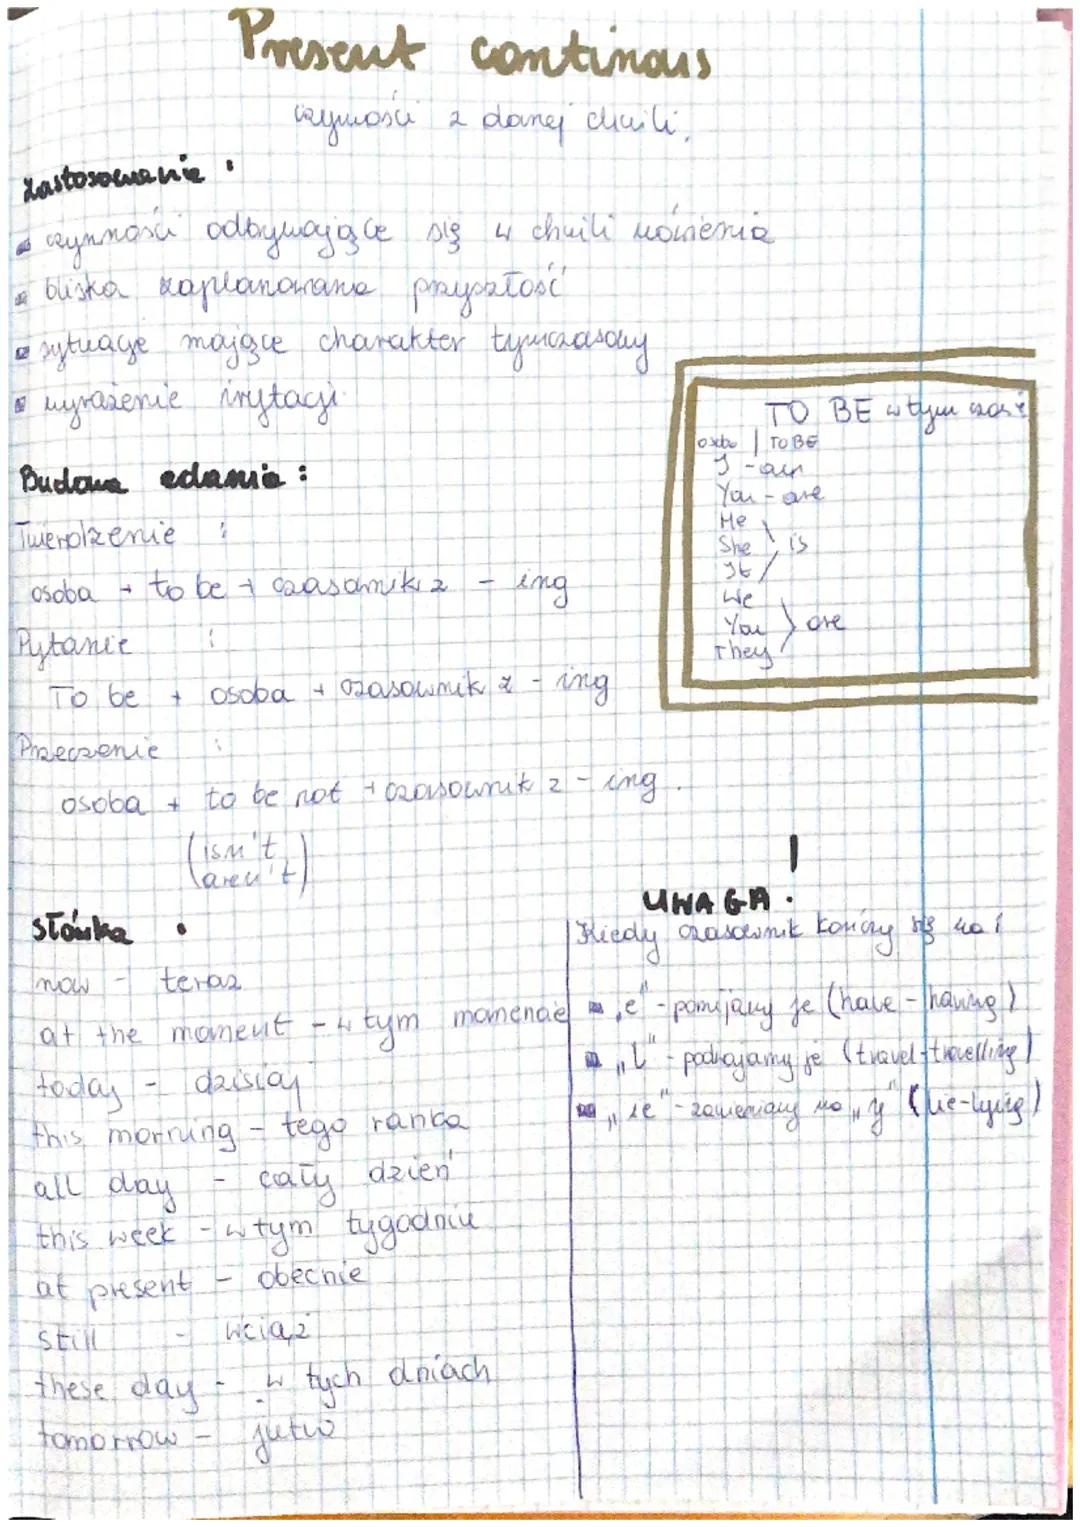 Present continous
czynności z danej chwili.
Zastosowanie :
czynności odbywające się w chwili mówienia
bliska zaplanowana przyszłość
sytuacje mające charakter tymczasowy
wyrażenie irytacji
TO BE w tym czasie
osoba | TO BE
I - am
You - are
He
She } is
It
We
You } are
They
Budowa zdania :
Twierdzenie :
osoba + to be + czasownik z - ing
Pytanie :
To be + osoba + czasownik z - ing
Przeczenie :
osoba + to be not + czasownik z - ing.
(isn't
aren't)
słówka :
now - teraz
at the moment - w tym momencie
today - dzisiaj
this morning - tego ranka
all day - cały dzień
this week - w tym tygodniu
at present - obecnie
still - wciąż
these day - w tych dniach
tomorrow - jutro
UWAGA !
Kiedy czasownik kończy się na :
„e" - pomijamy je (have - having)
„l" - podwajamy je (travel - travelling)
„ie" - zamieniamy na „y" (lie - lying)